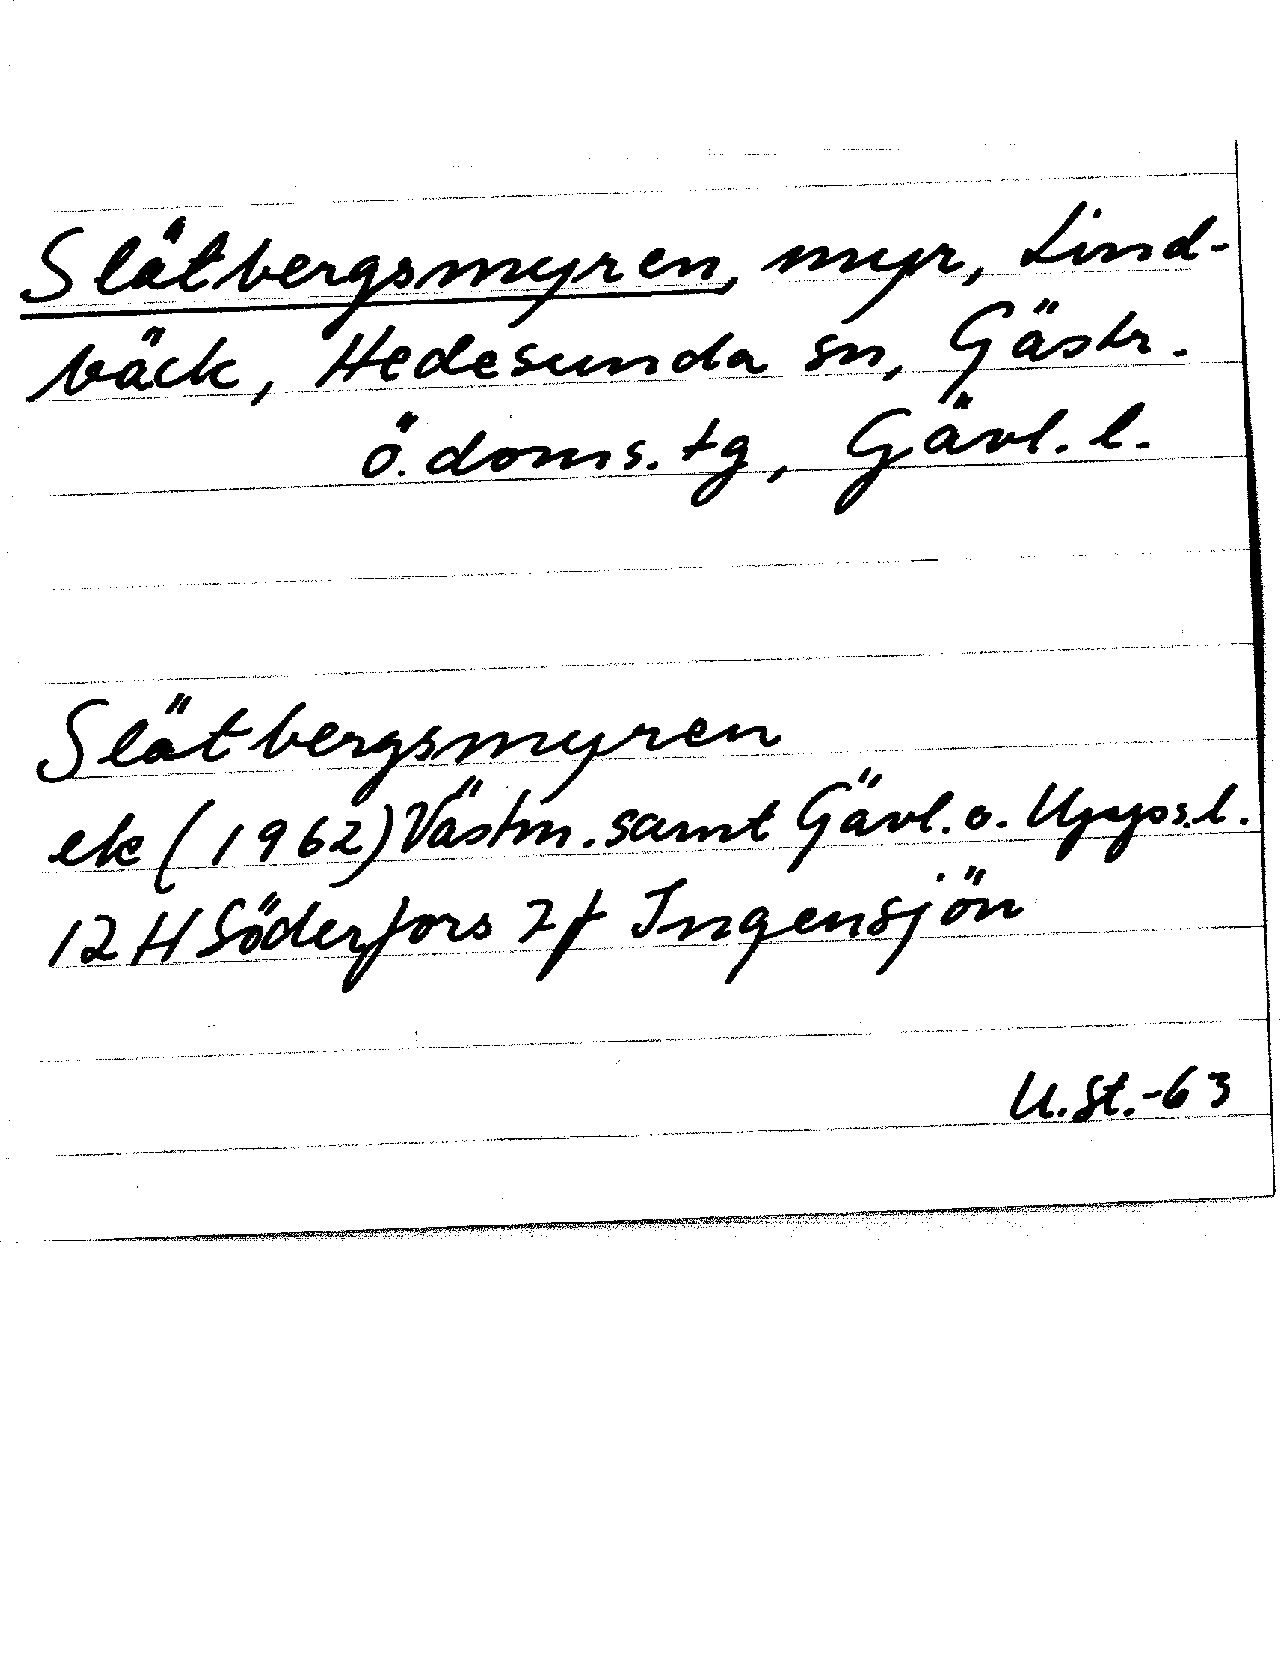 Slätbergsmyren, myr, Lind-
bäck, Hedesunda sn, Gästr.
ö. doms. tg, Gävl. l.
Slätbergsmyren
ek (1962) Västm. samt Gävl. o. Upps. l.
12 H Söderfors 7f Ingensjön
U. St. -63